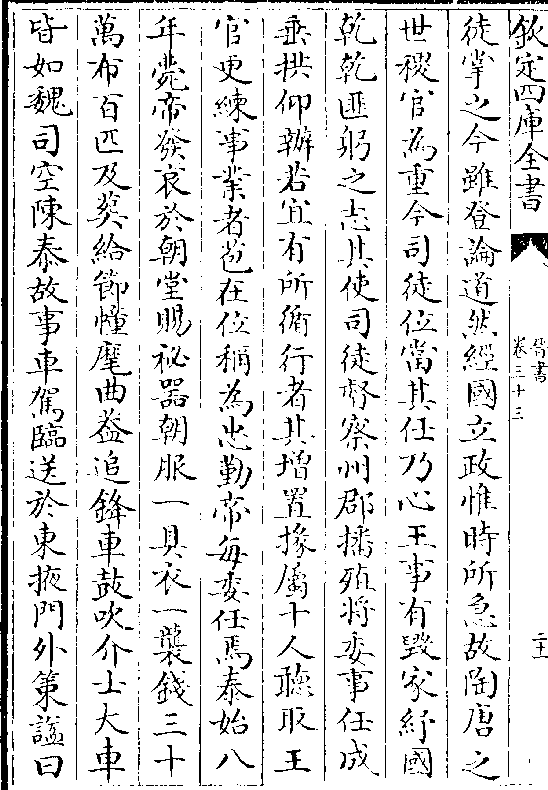 欽定四庫全書
晉書
卷三十三
二十一
徒掌之今雖登論道然經國立政惟時所急故陶唐之
世稷官為重今司徒位當其任乃心王事有毀家紓國
乾乾匪躬之志其使司徒督察州郡播殖將委事任成
垂拱仰辦若宜有所循行者其增置掾屬十人聽取王
官更練事業者苞在位稱為忠勤帝每委任焉泰始八
年薨帝發哀於朝堂賜祕器朝服一具衣一襲錢三十
萬布百匹及葬給節幢麾曲葢追鋒車鼓吹介士大車
皆如魏司空陳泰故事車駕臨送於東掖門外策諡曰